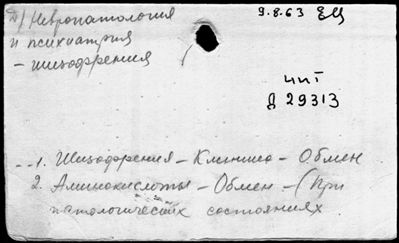 Д) Невропатология
и психиатрия
- шизофрения
9.8.63 ЕЦ
чит
Д 29313
1. Шизофрения - Клиника - Обмен
2. Аминокислоты - Обмен - (При
патологических состояниях